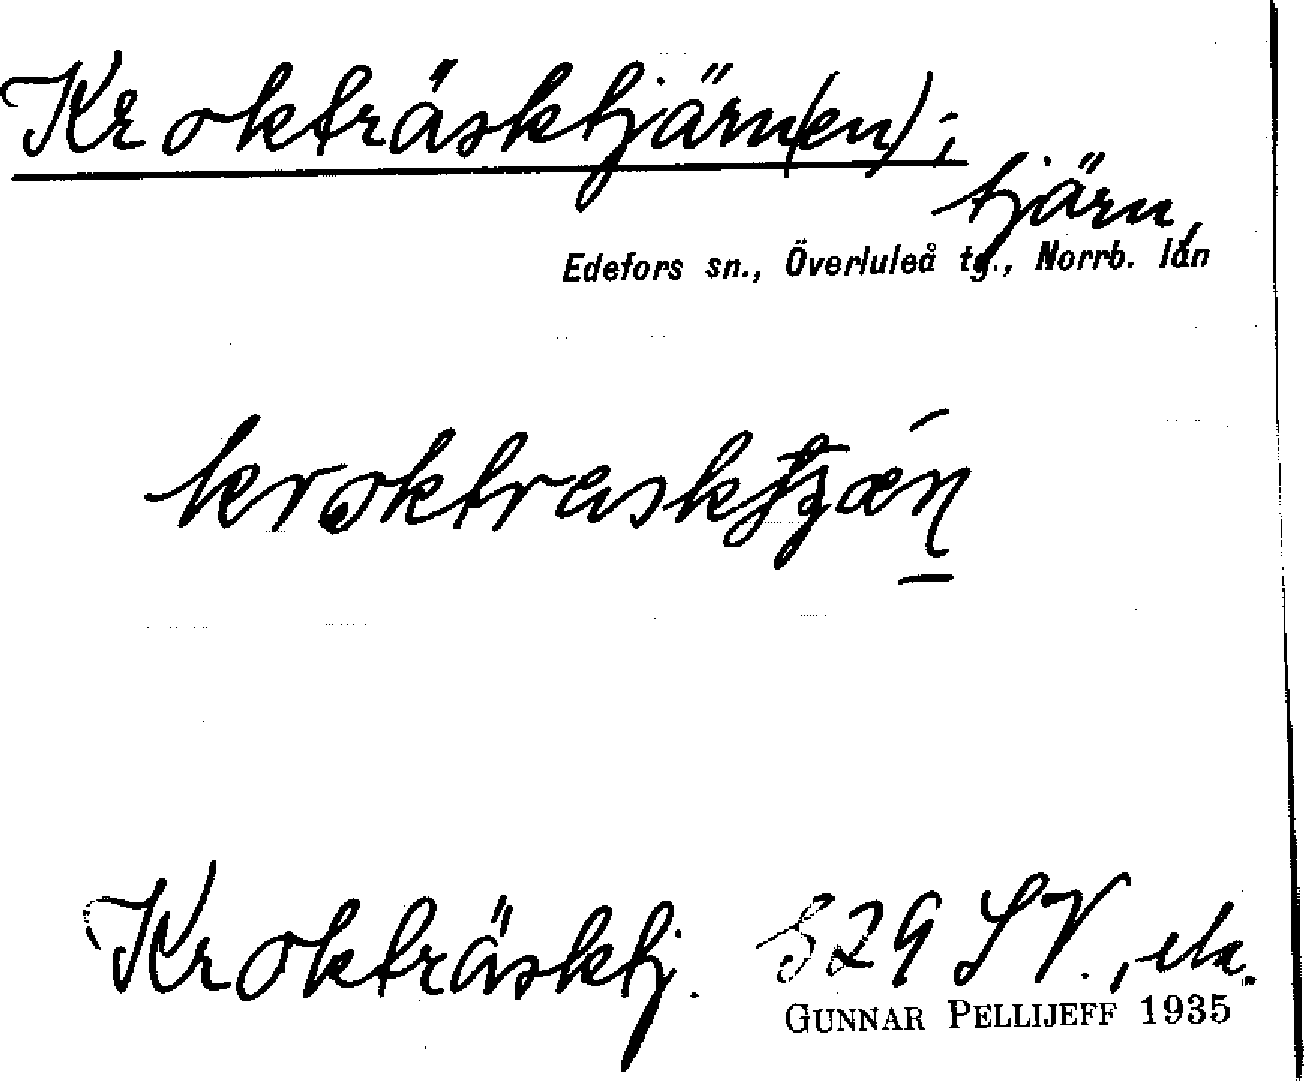 Krokträsktjärn(en);
tjärn,
Edefors sn., Överluleå tg., Norrb. län
Krokträsktj. S29 SV.,
GUNNAR PELLIJEFF 1935